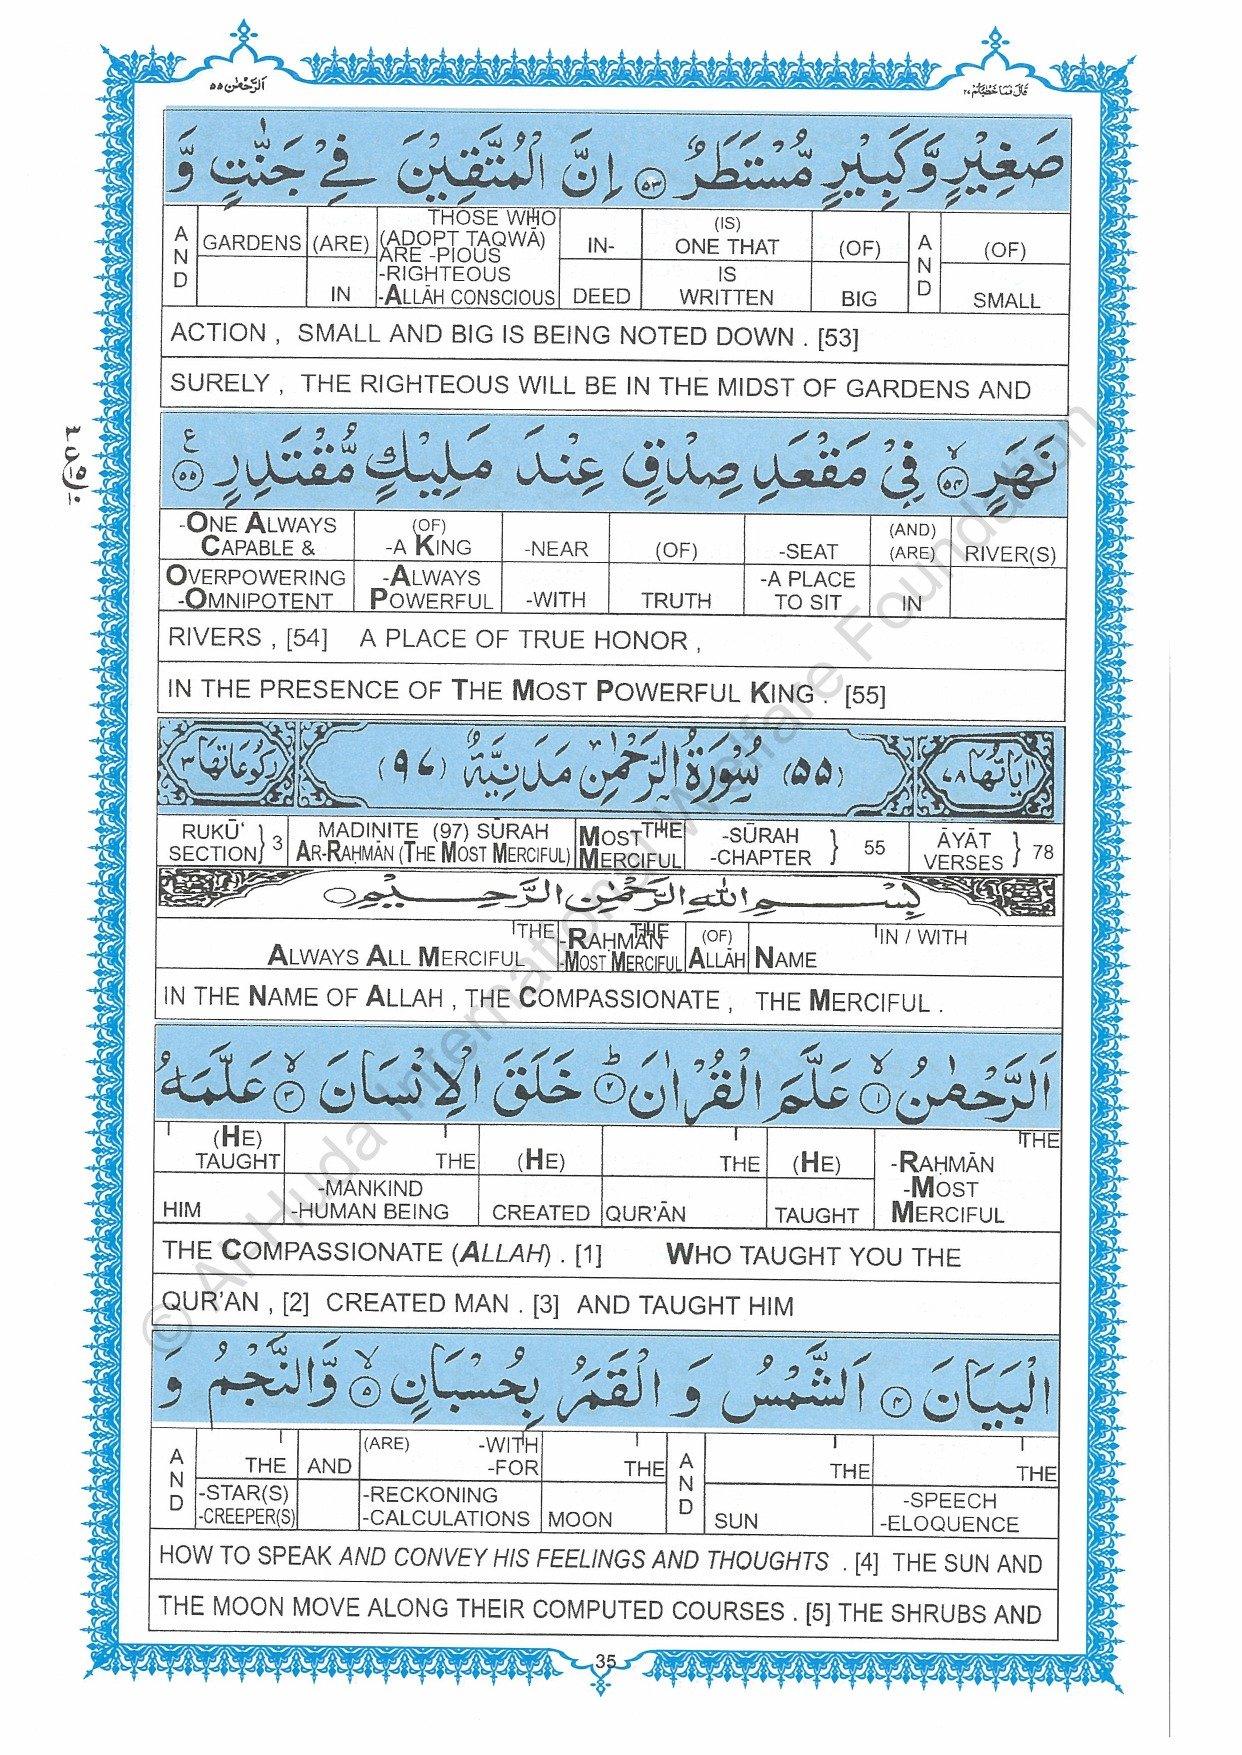 الرحمن ٥٥
قال فما خطبكم ٢٧
صَغِيْرٍ وَّكَبِيْرٍ مُّسْتَطَرٌ ﴿۵۳﴾ اِنَّ الْمُتَّقِيْنَ فِيْ جَنّٰتٍ وَّ
AND GARDENS (ARE) IN THOSE WHO (ADOPT TAQWĀ) ARE -PIOUS -RIGHTEOUS -ALLĀH CONSCIOUS IN- DEED (IS) ONE THAT IS WRITTEN (OF) BIG AND (OF) SMALL
ACTION , SMALL AND BIG IS BEING NOTED DOWN . [53]
SURELY , THE RIGHTEOUS WILL BE IN THE MIDST OF GARDENS AND
نَهَرٍ ﴿۵۴﴾ۙ فِيْ مَقْعَدِ صِدْقٍ عِنْدَ مَلِيْكٍ مُّقْتَدِرٍ ﴿۵۵﴾ ع
-ONE ALWAYS CAPABLE & OVERPOWERING -OMNIPOTENT (OF) -A KING -ALWAYS POWERFUL -NEAR -WITH (OF) TRUTH -SEAT -A PLACE TO SIT (AND) (ARE) IN RIVER(S)
RIVERS , [54] A PLACE OF TRUE HONOR ,
IN THE PRESENCE OF THE MOST POWERFUL KING . [55]
اٰيَاتُهَا ٧٨ (۵۵) سُوْرَةُ الرَّحْمٰنِ مَدَنِيَّةٌ (٩٧) رُكُوْعَاتُهَا ٣
RUKŪ‘ SECTION} 3 MADINITE (97) SŪRAH AR-RAHMĀN (THE MOST MERCIFUL) THE MOST MERCIFUL -SŪRAH -CHAPTER } 55 ĀYĀT VERSES } 78
بِسْمِ اللهِ الرَّحْمٰنِ الرَّحِيْمِ
THE ALWAYS ALL MERCIFUL THE -RAHMĀN -MOST MERCIFUL (OF) ALLĀH NAME IN / WITH
IN THE NAME OF ALLAH , THE COMPASSIONATE , THE MERCIFUL .
اَلرَّحْمٰنُ ﴿۱﴾ۙ عَلَّمَ الْقُرْاٰنَ ﴿۲﴾ؕ خَلَقَ الْاِنْسَانَ ﴿۳﴾ۙ عَلَّمَهُ
(HE) TAUGHT HIM THE -MANKIND -HUMAN BEING (HE) CREATED THE QUR’ĀN (HE) TAUGHT THE -RAḤMĀN -MOST MERCIFUL
THE COMPASSIONATE (ALLAH) . [1] WHO TAUGHT YOU THE
QUR’AN , [2] CREATED MAN . [3] AND TAUGHT HIM
الْبَيَانَ ﴿۴﴾ اَلشَّمْسُ وَ الْقَمَرُ بِحُسْبَانٍ ﴿۵﴾ۙ وَّالنَّجْمُ وَ
AND THE -STAR(S) -CREEPER(S) AND (ARE) -WITH -FOR -RECKONING -CALCULATIONS THE MOON AND THE SUN THE -SPEECH -ELOQUENCE
HOW TO SPEAK AND CONVEY HIS FEELINGS AND THOUGHTS . [4] THE SUN AND
THE MOON MOVE ALONG THEIR COMPUTED COURSES . [5] THE SHRUBS AND
35
© Al Huda International Welfare Foundation